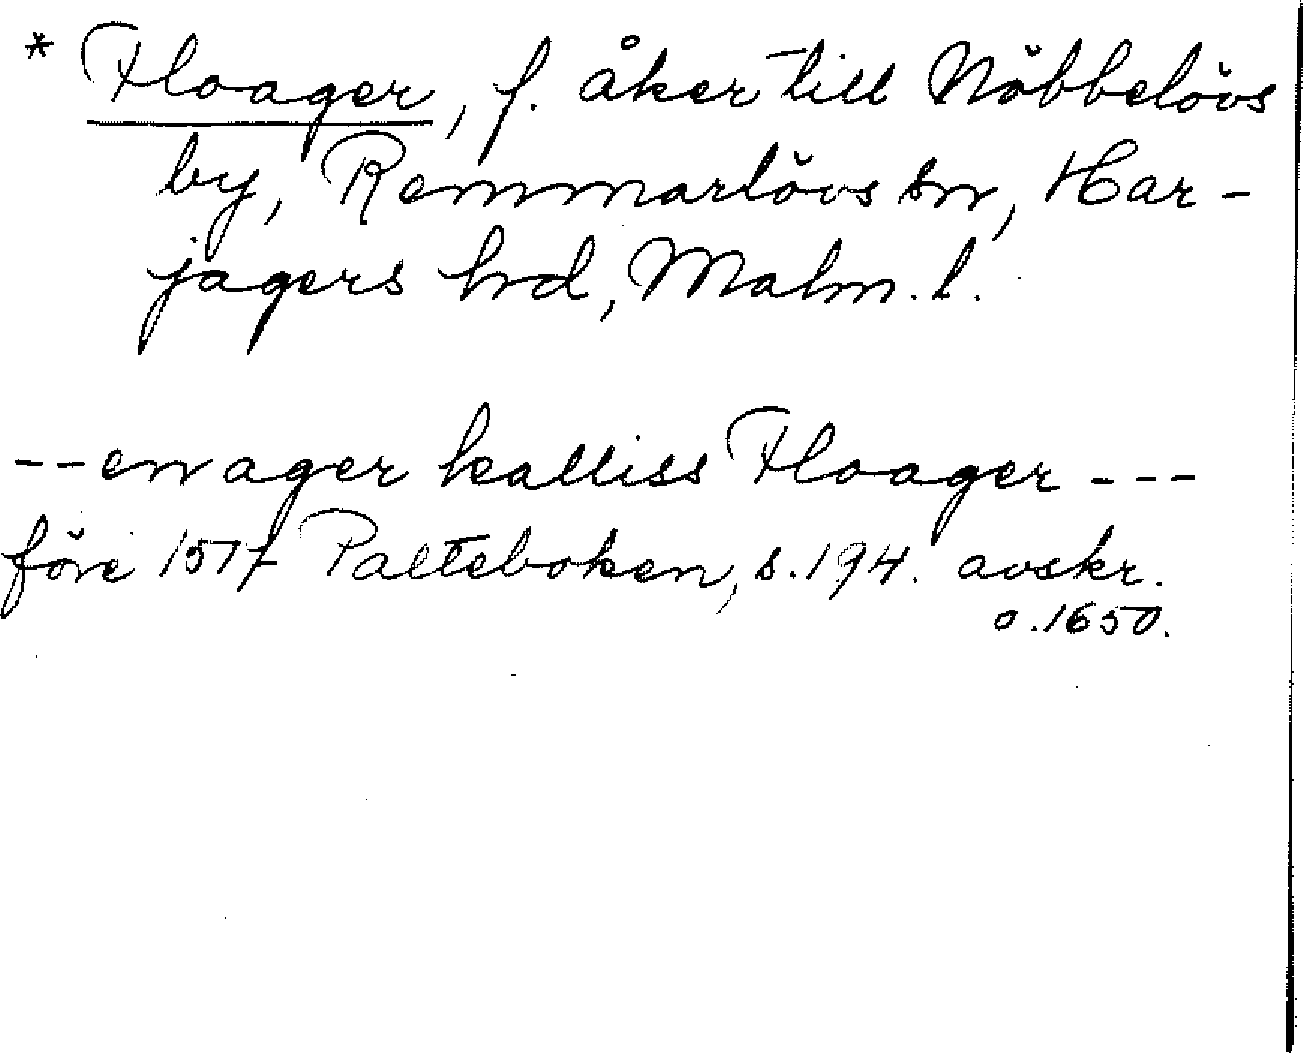 * Floager, f. åker till Nöbbelövs
by, Remmarlövs sn, Har-
jagers hrd, Malm. l.
-- en ager kalliss Floager ---
före 1517 Palteboken, s. 194. avskr.
o. 1650.